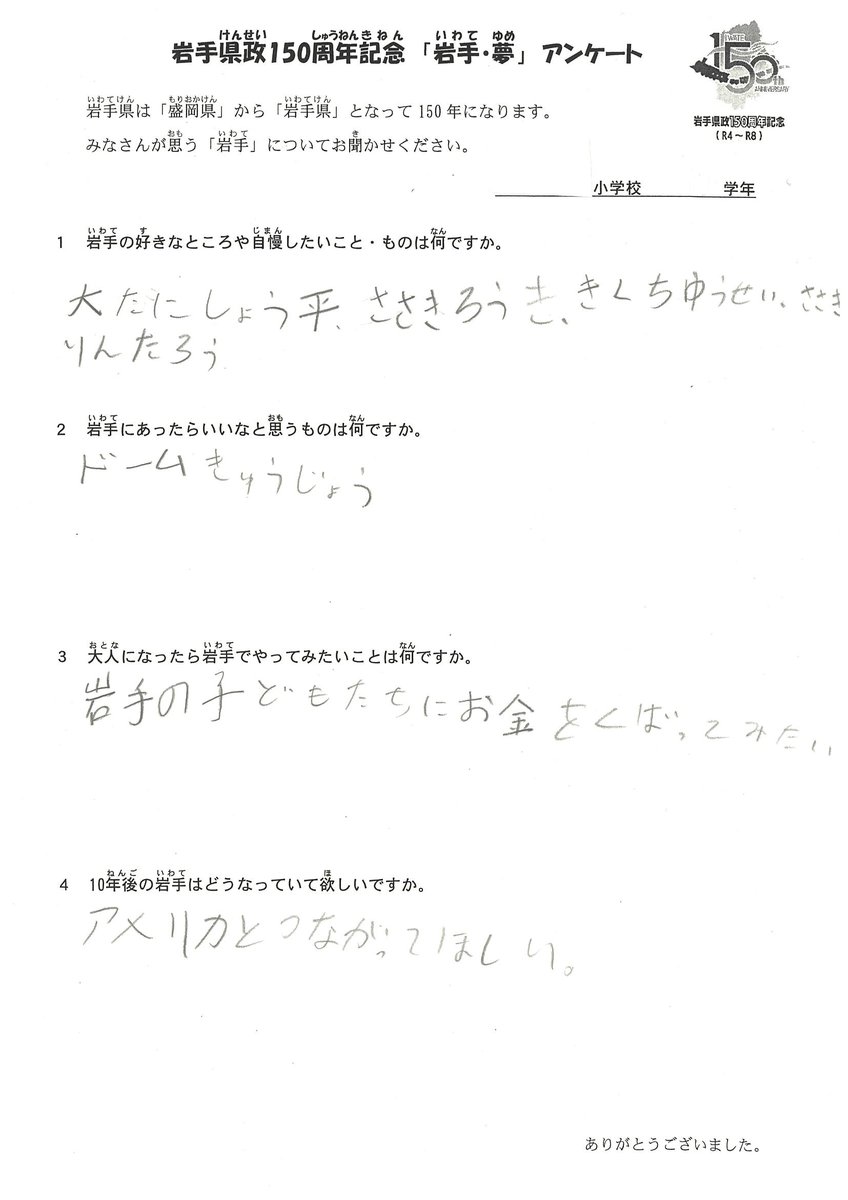 岩手県政150周年記念「岩手・夢」アンケート
IWATE
150th
ANNIVERSARY
岩手県政150周年記念
(R4~R8)
岩手県は「盛岡県」から「岩手県」となって150年になります。
みなさんが思う「岩手」についてお聞かせください。
小学校 学年
1 岩手の好きなところや自慢したいこと・ものは何ですか。
大たにしょう平、ささきろうき、きくちゆうせい、ささき
りんたろう
2 岩手にあったらいいなと思うものは何ですか。
ドームきゅうじょう
3 大人になったら岩手でやってみたいことは何ですか。
岩手の子どもたちにお金をくばってみたい
4 10年後の岩手はどうなっていて欲しいですか。
アメリカとつながってほしい。
ありがとうございました。